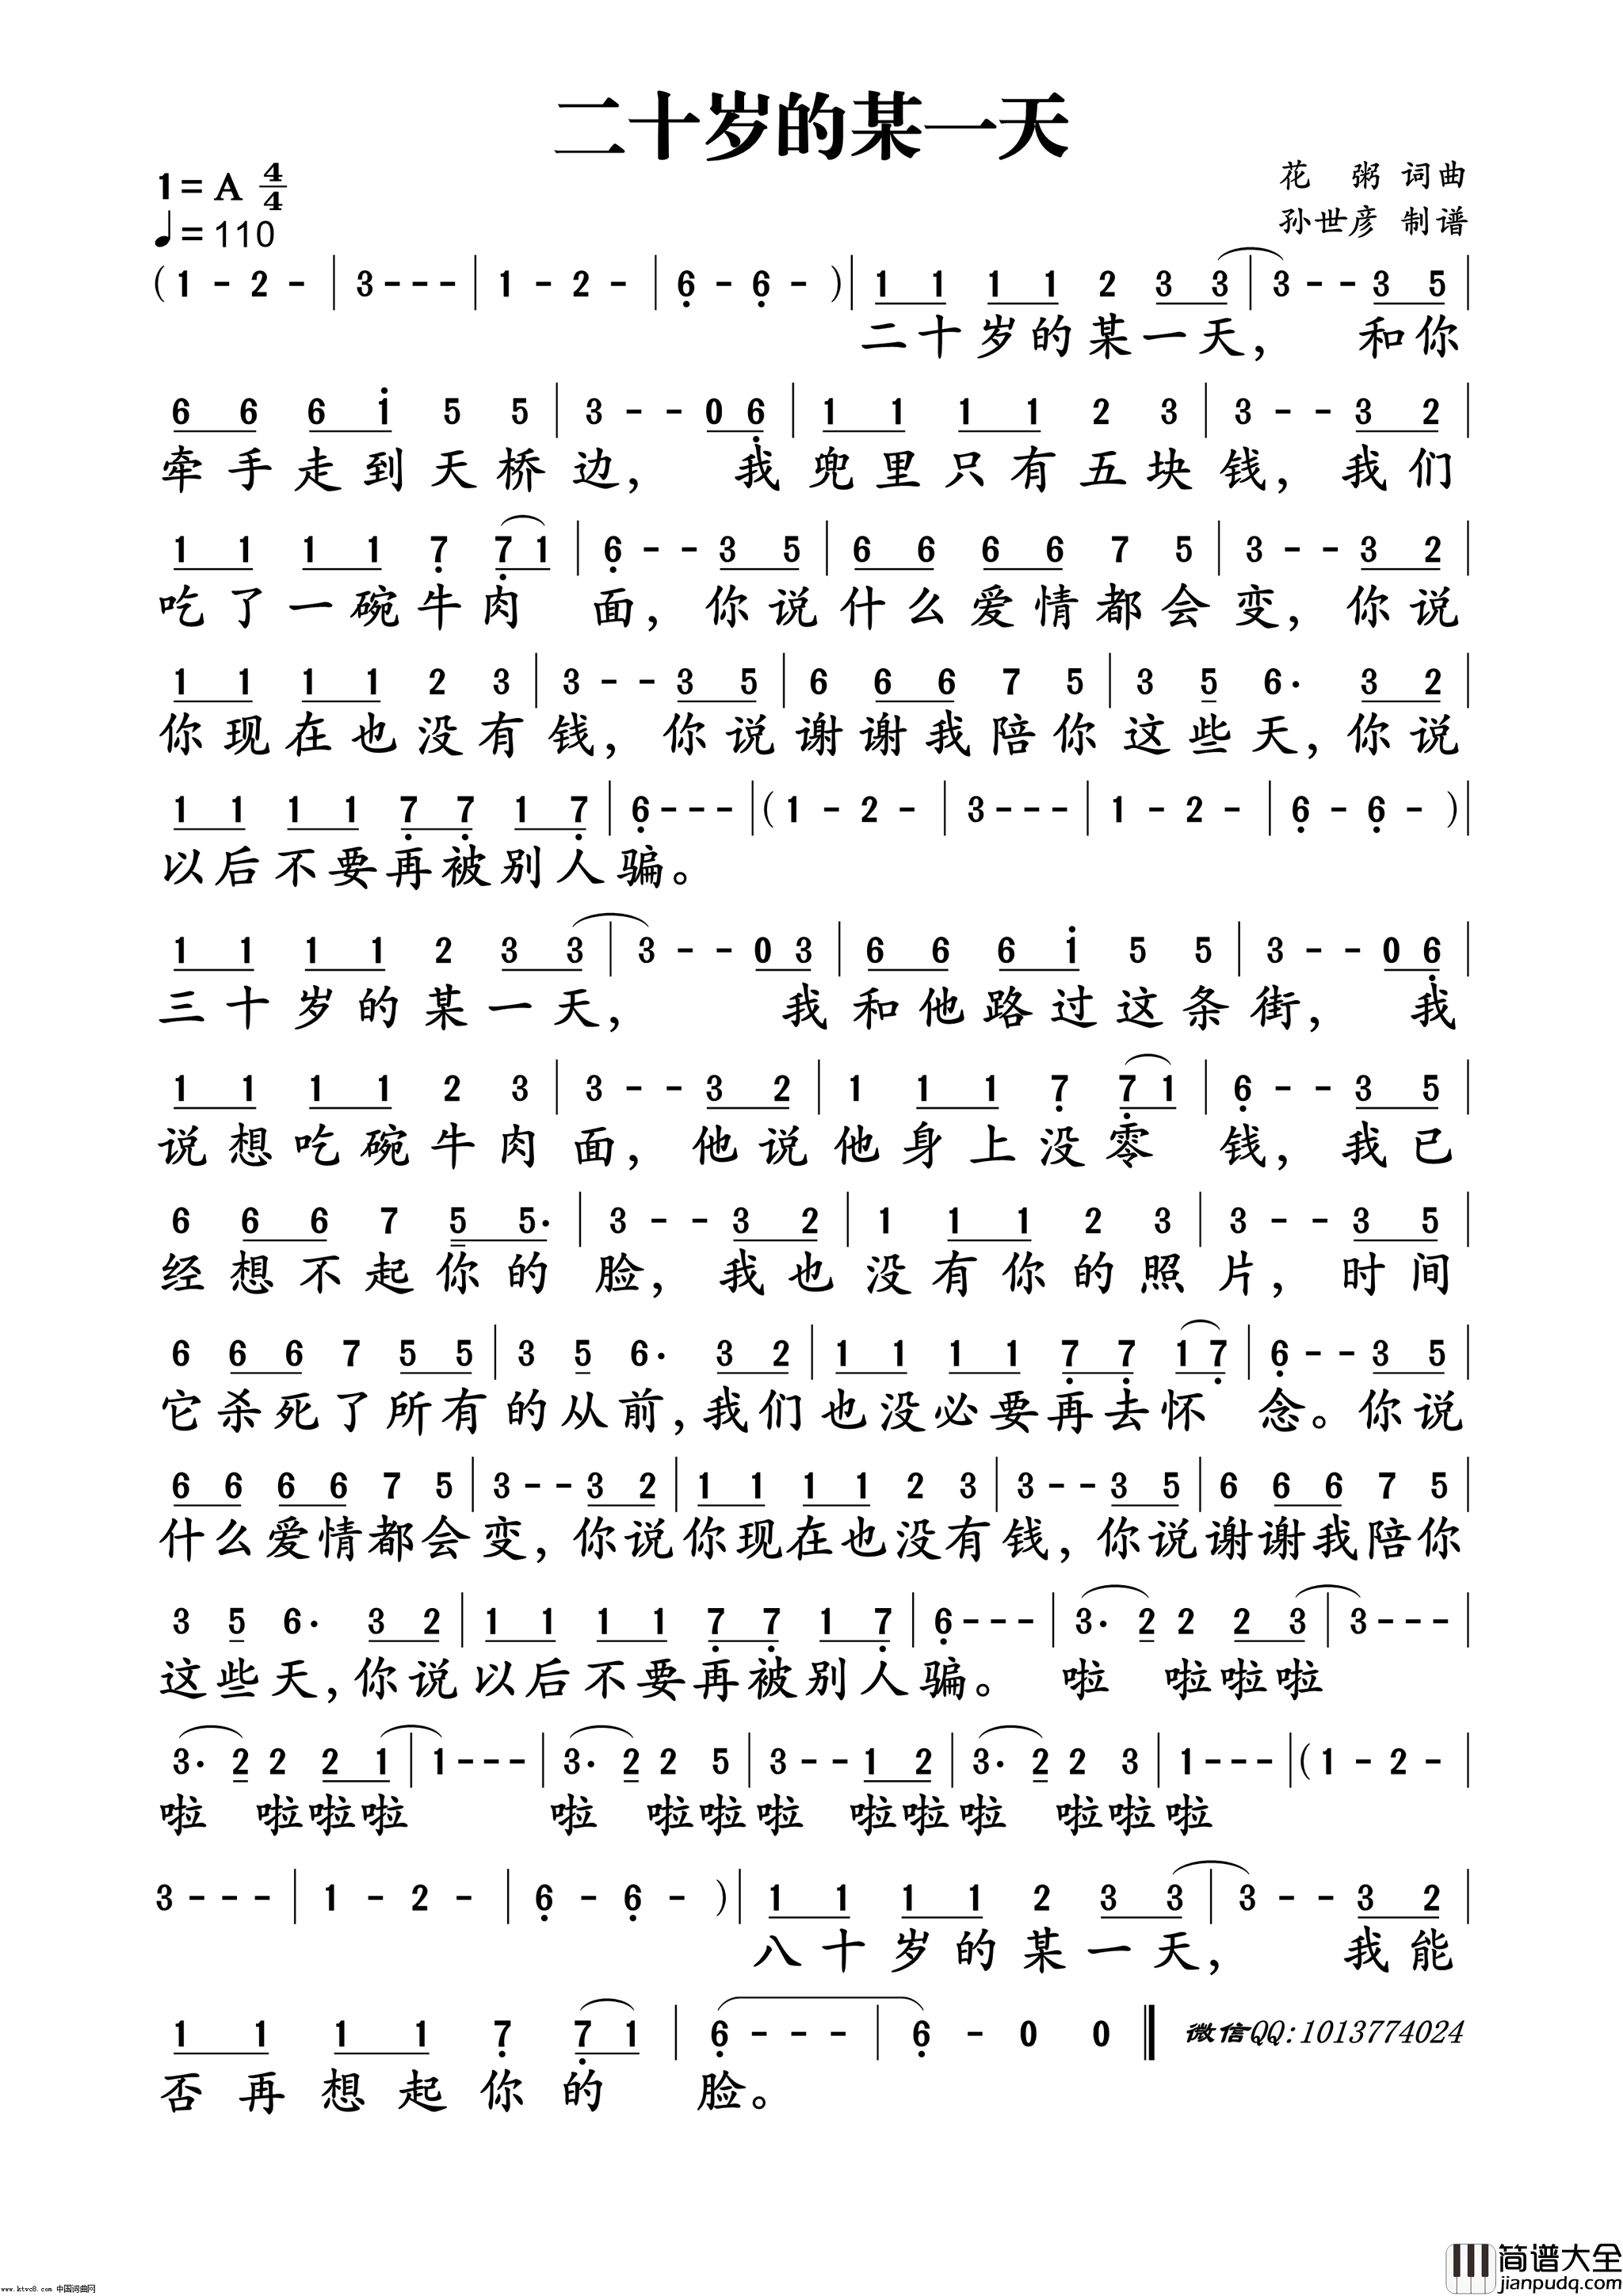 二十岁的某一天
1=A 4/4
花 粥 词曲
♩=110
孙世彦 制谱
(1 - 2 - | 3 - - - | 1 - 2 - | 6̣ - 6̣ - )| 1 1 1 1 2 3 3 | 3 - - 3 5 |
二十岁的某一天， 和你
6 6 6 i 5 5 | 3 - - 0 6̣ | 1 1 1 1 2 3 | 3 - - 3 2 |
牵手走到天桥边， 我兜里只有五块钱，我们
1 1 1 1 7̣ 7̣ 1 | 6̣ - - 3 5 | 6 6 6 6 7 5 | 3 - - 3 2 |
吃了一碗牛肉 面，你说什么爱情都会变，你说
1 1 1 1 2 3 | 3 - - 3 5 | 6 6 6 7 5 | 3 5 6· 3 2 |
你现在也没有钱，你说谢谢我陪你这些天，你说
1 1 1 1 7̣ 7̣ 1 7̣ | 6̣ - - - |(1 - 2 - | 3 - - - | 1 - 2 - | 6̣ - 6̣ - )|
以后不要再被别人骗。
1 1 1 1 2 3 3 | 3 - - 0 3 | 6 6 6 i 5 5 | 3 - - 0 6̣ |
三十岁的某一天， 我和他路过这条街， 我
1 1 1 1 2 3 | 3 - - 3 2 | 1 1 1 7̣ 7̣ 1 | 6̣ - - 3 5 |
说想吃碗牛肉面，他说他身上没零 钱，我已
6 6 6 7 5 5· | 3 - - 3 2 | 1 1 1 2 3 | 3 - - 3 5 |
经想不起你的脸，我也没有你的照片，时间
6 6 6 7 5 5 | 3 5 6· 3 2 | 1 1 1 1 7̣ 7̣ 1 7̣ | 6̣ - - 3 5 |
它杀死了所有的从前，我们也没必要再去怀 念。你说
6 6 6 6 7 5 | 3 - - 3 2 | 1 1 1 1 2 3 | 3 - - 3 5 | 6 6 6 7 5 |
什么爱情都会变，你说你现在也没有钱，你说谢谢我陪你
3 5 6· 3 2 | 1 1 1 1 7̣ 7̣ 1 7̣ | 6̣ - - - | 3· 2 2 2 3 | 3 - - - |
这些天，你说以后不要再被别人骗。 啦 啦啦啦
3· 2 2 2 1 | 1 - - - | 3· 2 2 5 | 3 - - 1 2 | 3· 2 2 3 | 1 - - - |(1 - 2 - |
啦 啦啦啦 啦 啦啦啦 啦啦啦 啦啦啦
3 - - - | 1 - 2 - | 6̣ - 6̣ - )| 1 1 1 1 2 3 3 | 3 - - 3 2 |
八十岁的某一天， 我能
1 1 1 1 7̣ 7̣ 1 | 6̣ - - - | 6̣ - 0 0 ‖ 微信QQ:1013774024
否再想起你的 脸。
简谱大全
www.ktvc8.com 中国词曲网
jianpudq.com